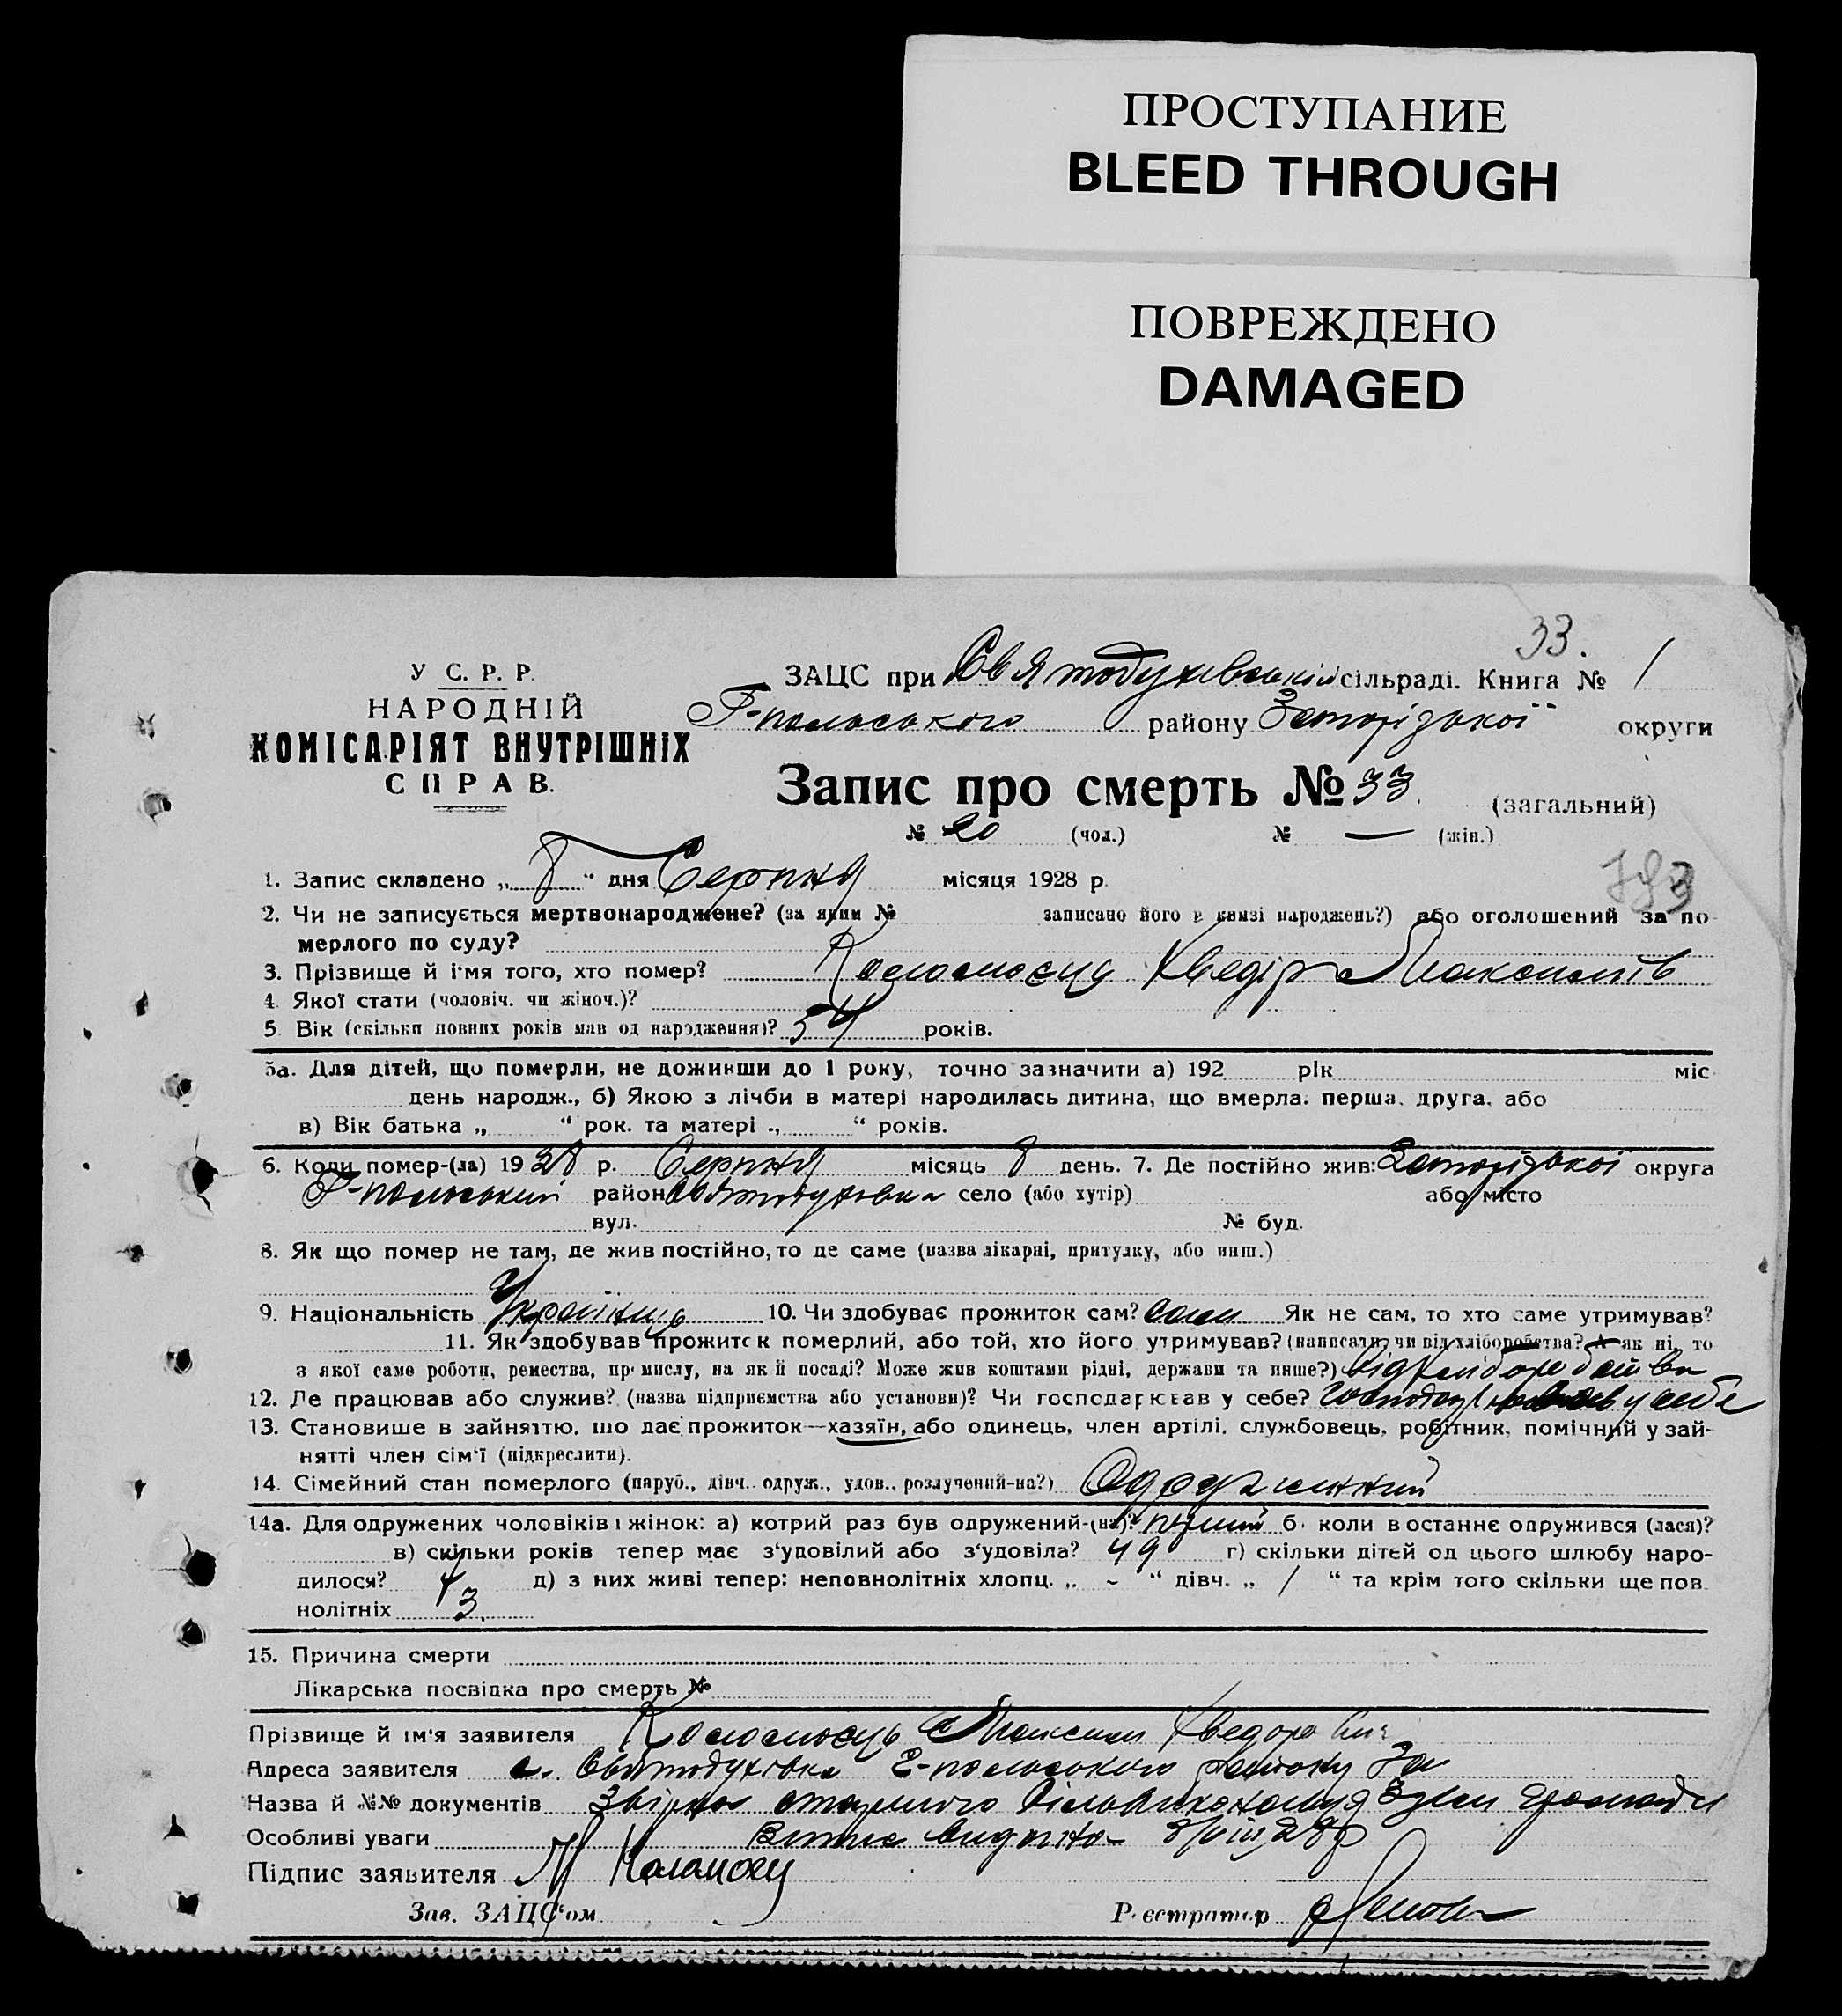 ПРОСТУПАНИЕ
BLEED THROUGH
ПОВРЕЖДЕНО
DAMAGED
33.
У С. Р. Р.
НАРОДНІЙ
КОМІСАРІЯТ ВНУТРІШНІХ
СПРАВ.
ЗАЦС при Святодухівській сільраді. Книга № 1
Г-польського району Запорізької округи
Запис про смерть № 33. (загальний)
№ 20 (чол.) № — (жін.)
1. Запис складено „ 8 “ дня Серпня місяця 1928 р.
2. Чи не записується мертвонароджене? (за яким № записано його в книзі народжень?) або оголошений за по-
мерлого по суду?
3. Прізвище й ім'я того, хто помер? Коломоєць Хведір Максимів
4. Якої стати (чоловіч. чи жіноч.)?
5. Вік (скільки повних років мав од народження)? 54 років.
5а. Для дітей, що померли, не доживши до 1 року, точно зазначити а) 192 рік міс.
день народж., б) Якою з лічби в матері народилась дитина, що вмерла: перша, друга, або
в) Вік батька „ “ рок. та матері „ “ років.
6. Коли помер-(ла) 1928 р. Серпня місяць 8 день. 7. Де постійно жив: Запорізької округа
Г-польський район Святодухівка село (або хутір) або місто
вул. № буд.
8. Як що помер не там, де жив постійно, то де саме (назва лікарні, притулку, або инш.)
9. Національність Українець 10. Чи здобуває прожиток сам? Сам Як не сам, то хто саме утримував?
11. Як здобував прожиток померлий, або той, хто його утримував? (написати, чи від хліборобства? А як ні, то
з якої саме роботи, ремества, промислу, на якій посаді? Може жив коштами рідні, держави та инше?) Від хліборобства
12. Де працював або служив? (назва підприємства або установи)? Чи господарював у себе? у себе
13. Становише в зайняттю, що дає прожиток—хазяїн, або одинець, член артілі, службовець, робітник, помічний у зай-
нятті член сім'ї (підкреслити).
14. Сімейний стан померлого (паруб., дівч. одруж., удов., розлучений-на?) Одружений
14а. Для одружених чоловіків і жінок: а) котрий раз був одружений-(на)? перший б) коли востаннє одружився (лася)?
в) скільки років тепер має з'удовілий або з'удовіла? 49 г) скільки дітей од цього шлюбу наро-
дилося? 4 д) з них живі тепер: неповнолітніх хлопц. „ - “ дівч. „ 1 “ та крім того скільки ще пов-
нолітніх 3.
15. Причина смерти
Лікарська посвідка про смерть №
Прізвище й ім'я заявителя Коломоєць Максим Хведорович
Адреса заявителя с. Святодухівка Г-польського району Зап
Назва й №№ документів громади
Особливі уваги Витяг видано 8/VIII 28р
Підпис заявителя М Коломоєц
Зав. ЗАЦС'ом Реєстратор